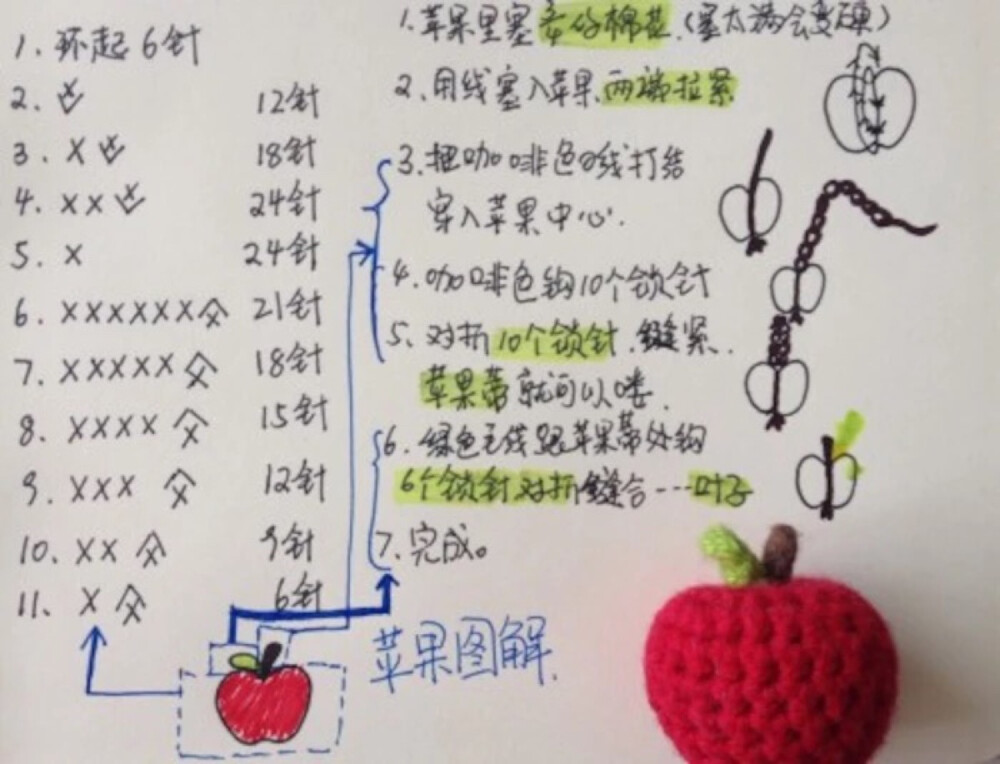 1. 环起6针
2. 12针
3. X 18针
4. XX 24针
5. X 24针
6. XXXXXX 21针
7. XXXXX 18针
8. XXXX 15针
9. XXX 12针
10. XX 9针
11. X 6针
1. 苹果里塞 棉花.(塞太满会变硬)
2. 用线塞入苹果两端拉紧
3. 把咖啡色线打结
穿入苹果中心.
4. 咖啡色钩10个锁针
5. 对折10个锁针.缝紧.
苹果蒂就可以喽.
6. 绿色毛线跟苹果蒂处钩
6个锁针对折缝合……叶子
7. 完成。
苹果图解.